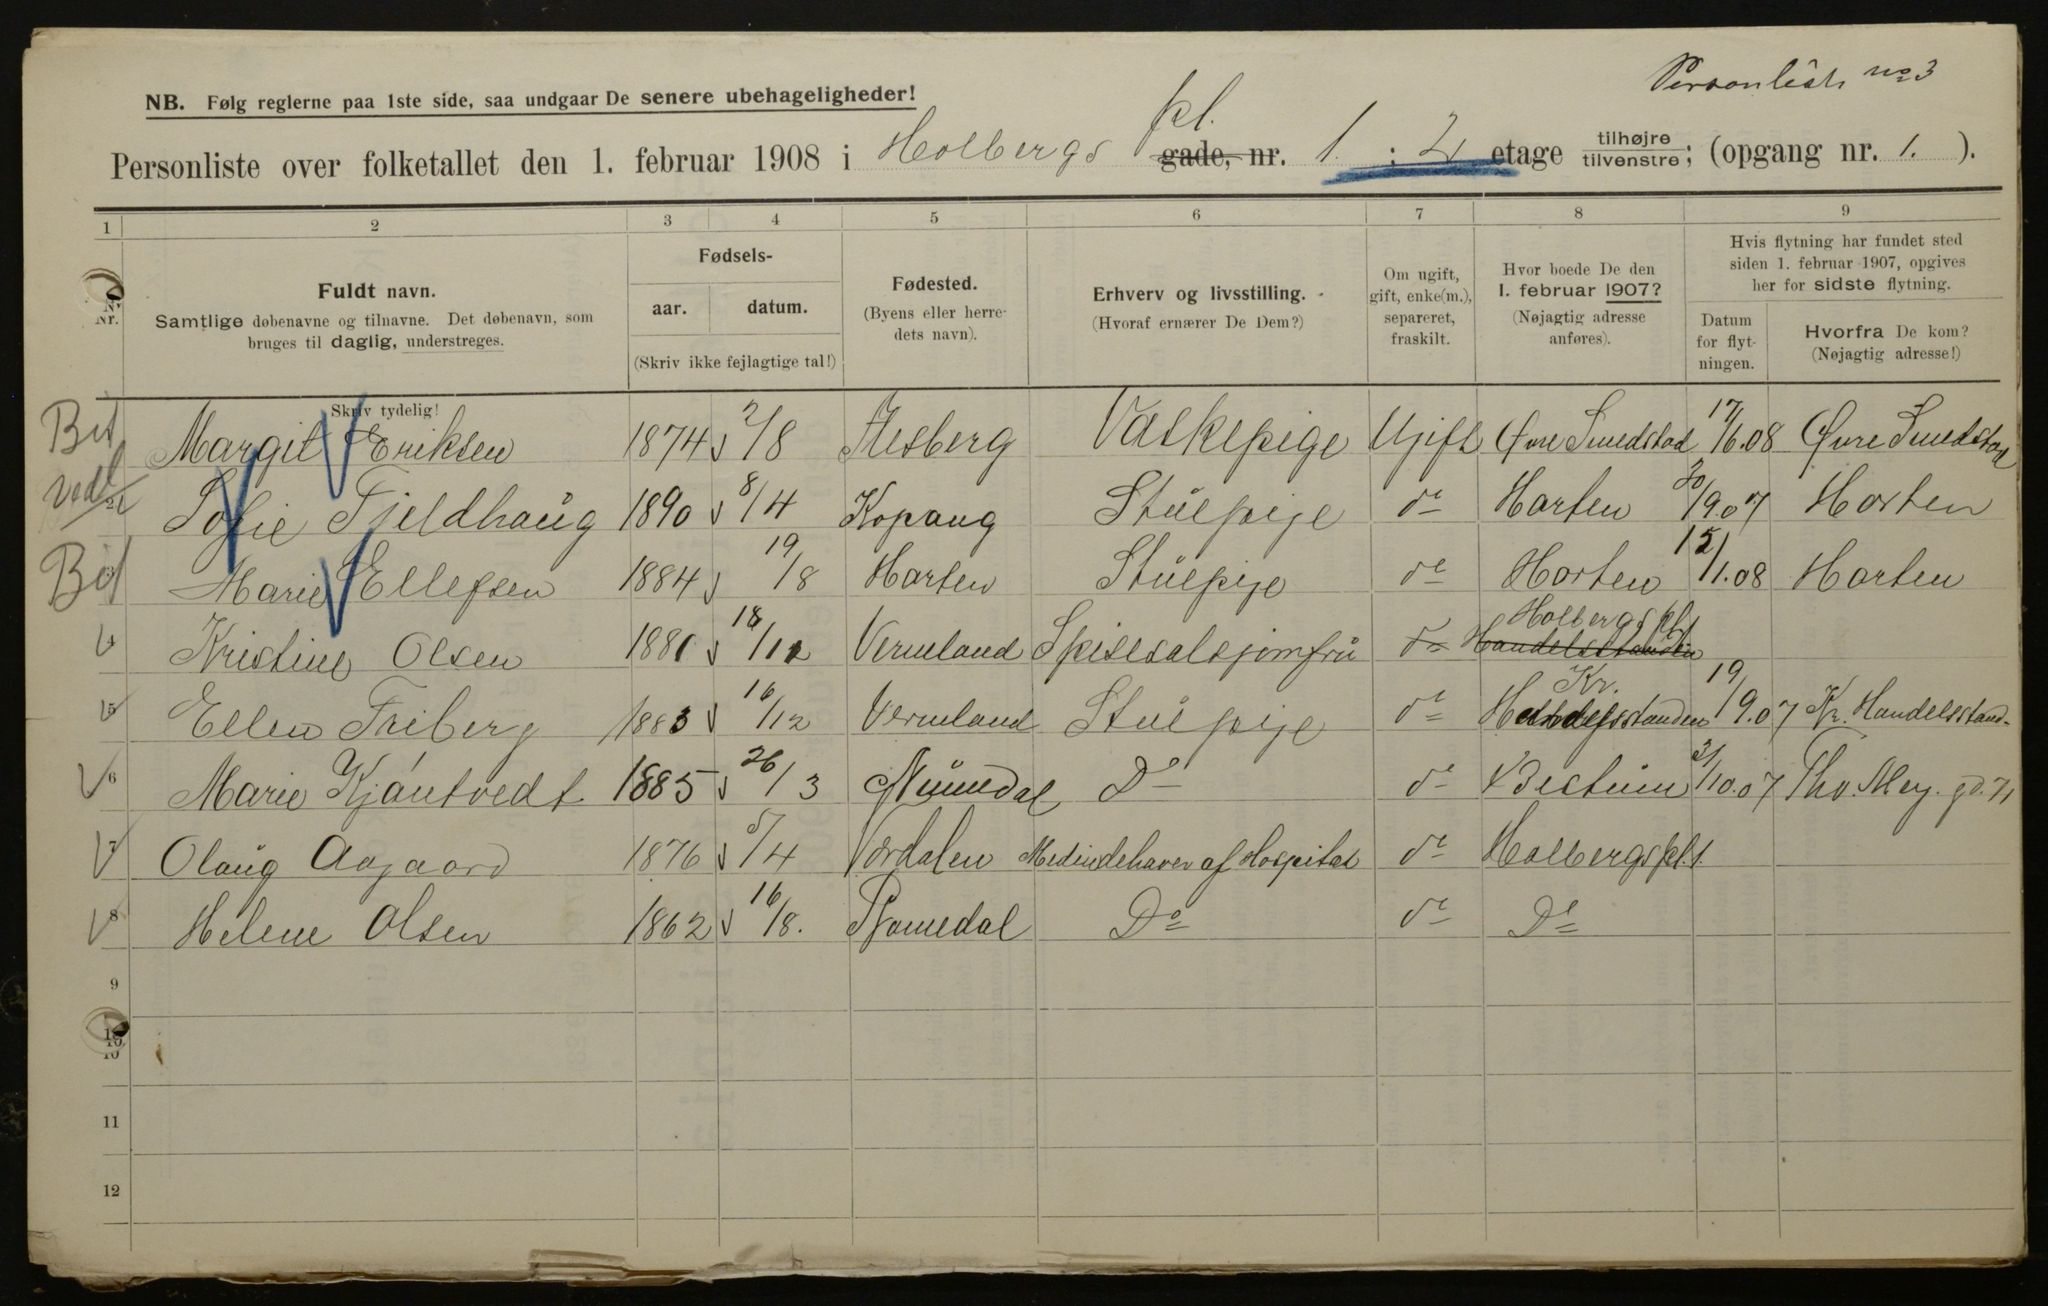 Personliste no 3
NB. Følg reglerne paa 1ste side, saa undgaar De senere ubehageligheder!
Personliste over folketallet den 1. februar 1908 i Holbergs pl. gade, nr. 1. : 2 etage tilhøjre tilvenstre; (opgang nr. 1. ).
1 2 3 4 5 6 7 8 9
Nr.
Fuldt navn.
Samtlige døbenavne og tilnavne. Det døbenavn, som
bruges til daglig, understreges.
Skriv tydelig!
Fødsels-
aar. datum.
(Skriv ikke fejlagtige tal!)
Fødested.
(Byens eller herre-
dets navn).
Erhverv og livsstilling.
(Hvoraf ernærer De Dem?)
Om ugift,
gift, enke(m.),
separeret,
fraskilt.
Hvor boede De den
1. februar 1907?
(Nøjagtig adresse
anføres).
Hvis flytning har fundet sted
siden 1. februar 1907, opgives
her for sidste flytning.
Datum
for flyt-
ningen.
Hvorfra De kom?
(Nøjagtig adresse!)
Margit Eriksen 1874 2/8 Vaskepige Ugift Øvre Smedstad 17/6.08 Øvre Smedstad
2 Sofie Fjeldhaug 1890 8/4 Kopang Stuepige do Horten 20/9.07 Horten
Marie Ellefsen 1884 19/8 Horten Stuepige do Horten 15/1.08 Horten
4 Kristine Olsen 1881 18/12 Vermland Spisesalsjomfru do Holbergspl 1 Handelsstanden
5 Ellen Friberg 1883 16/12 Vermland Stuepige do Kr. Handelsstanden 19/9.07 Kr. Handelsstand-
6 Marie 1885 26/3 Numedal Do do Bestum 3/10.07 Tho. Mey. gd. 71
7 Olaug Aagaard 1876 5/4 Medindehaver af Hospitset do Holbergspl. 1.
8 Helene Olsen 1862 16/8. Do do Do
9
10
11
12